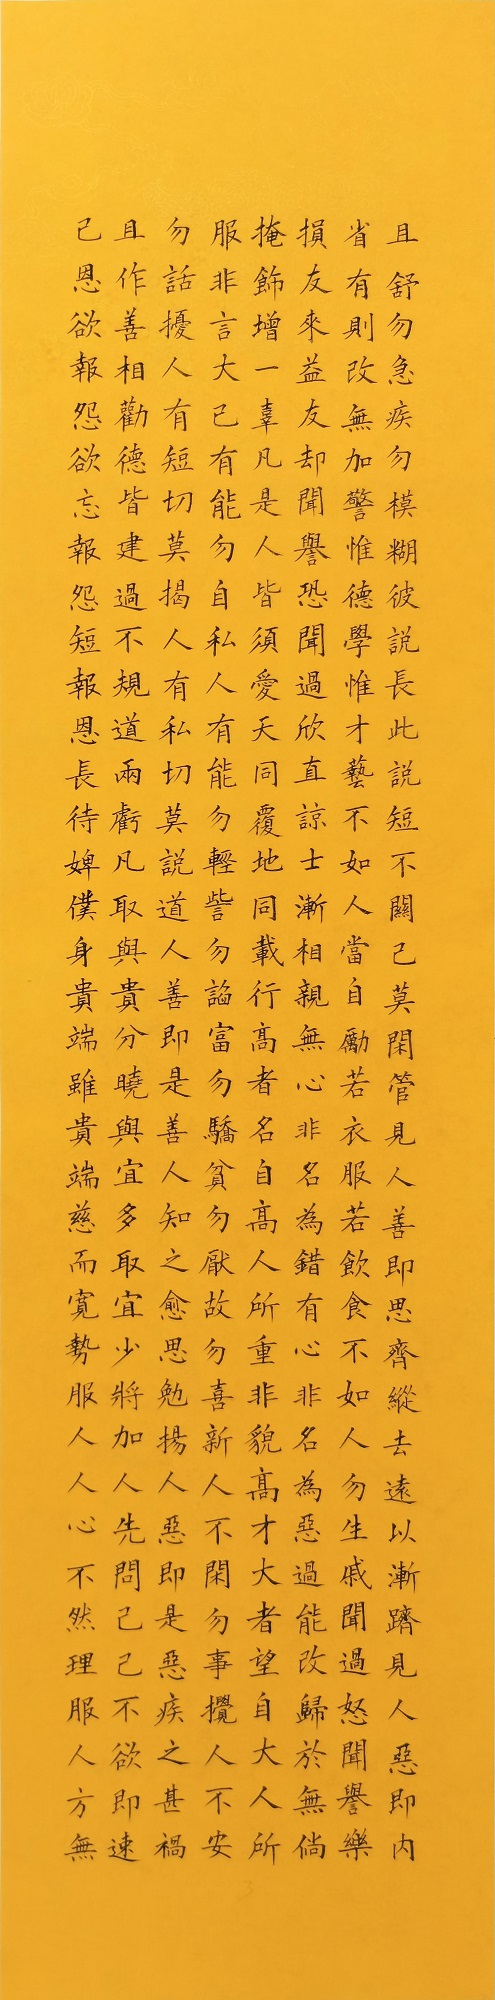 且舒勿急疾勿模糊彼説長此説短不關己莫閑管見人善即思齊縱去遠以漸躋見人惡即内
省有則改無加警惟德學惟才藝不如人當自勵若衣服若飲食不如人勿生戚聞過怒聞譽樂
損友來益友却聞譽恐聞過欣直諒士漸相親無心非名為錯有心非名為惡過能改歸於無倘
掩飾增一辜凡是人皆須愛天同覆地同載行高者名自高人所重非貌高才大者望自大人所
服非言大己有能勿自私人有能勿輕訾勿諂富勿驕貧勿厭故勿喜新人不閑勿事攪人不安
勿話擾人有短切莫揭人有私切莫説道人善即是善人知之愈思勉揚人惡即是惡疾之甚禍
且作善相勸德皆建過不規道兩虧凡取與貴分曉與宜多取宜少將加人先問己己不欲即速
已恩欲報怨欲忘報怨短報恩長待婢僕身貴端雖貴端慈而寬勢服人人心不然理服人方無
3